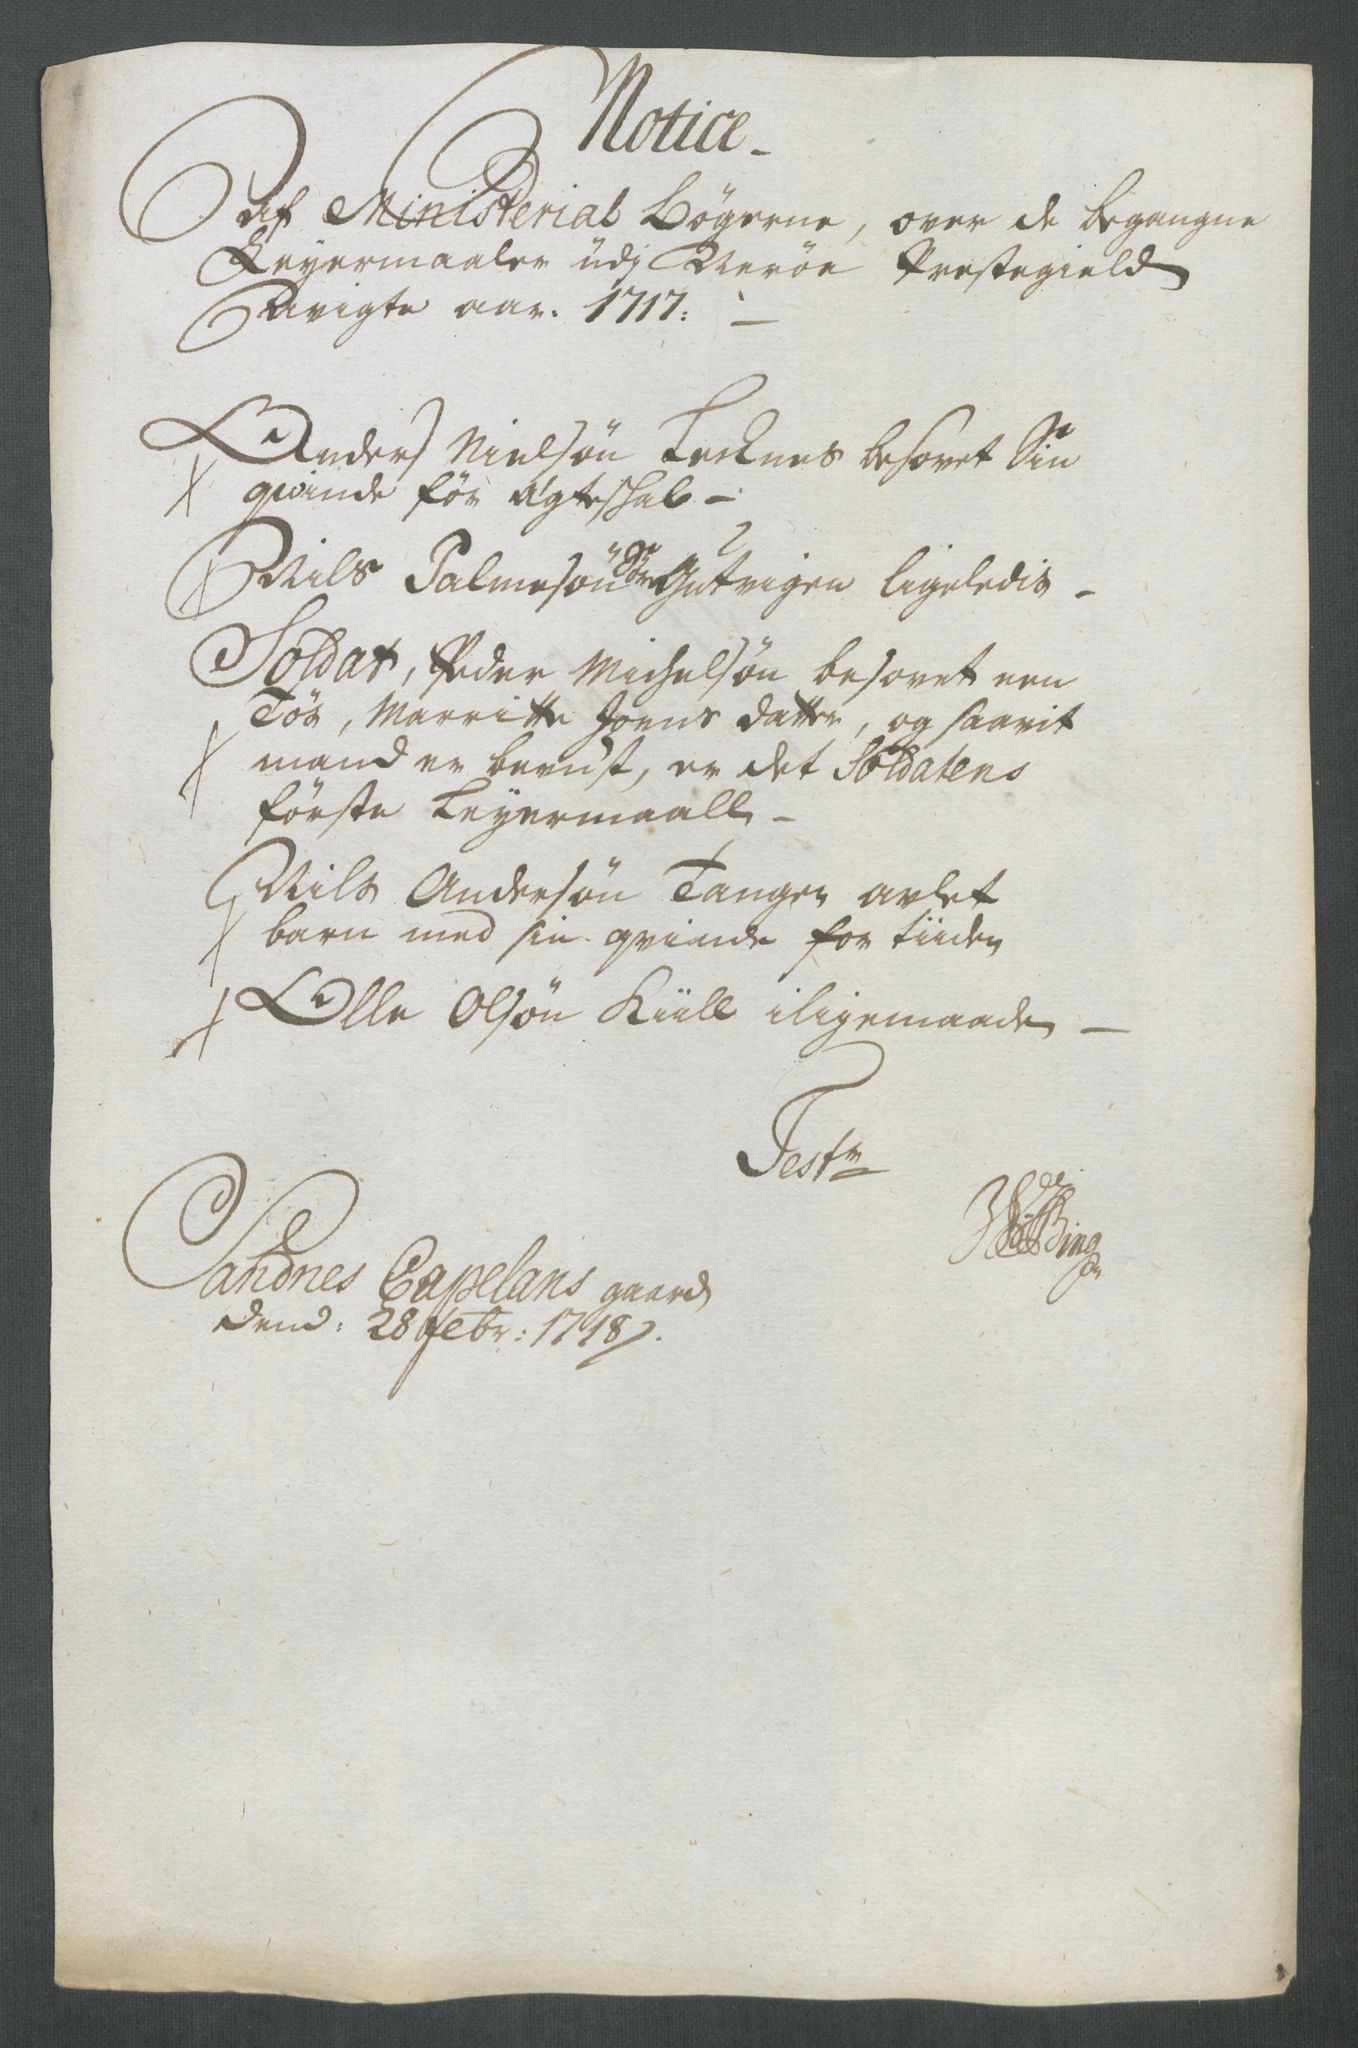 Notice
Af Ministerial Bögerne, over de begangne
Leyermaaler udj Neröe Prestegield
Avigte aar. 1717:
Anders Nielsön Leknes besovet Sin
qvinde för Ægteschab
Nils Palmesön Gutvigen ligeledis
Soldat, Peder Michelsön besovet een
Tös, Marritte Joens datter, og saavit
mand er bevust, er det Soldatens
förste Leyermaall
Nils Andersön Tangen avlet
barn med sin qvinde for tiiden
Olle Olsön Kiill iligemaade
Test
Sandnes Capelans gaard
dend: 28 Febr: 1718